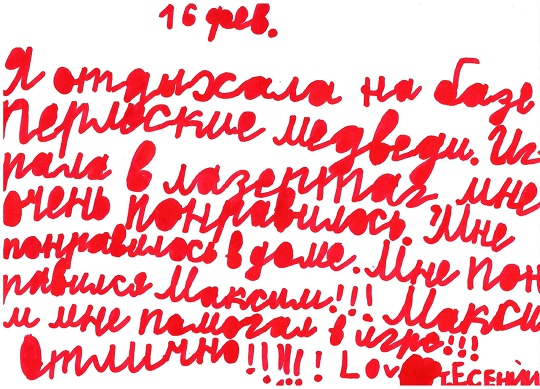 16 фев.
Я отдыхала на базе
Пермские медведи. Иг-
рала в лазертаг мне
очень понравилось. Мне
понравилось в доме. Мне пон
равился Максим!!! Макси
м мне помогал в игре!!!
Отлично!!!!! Lov от Есении